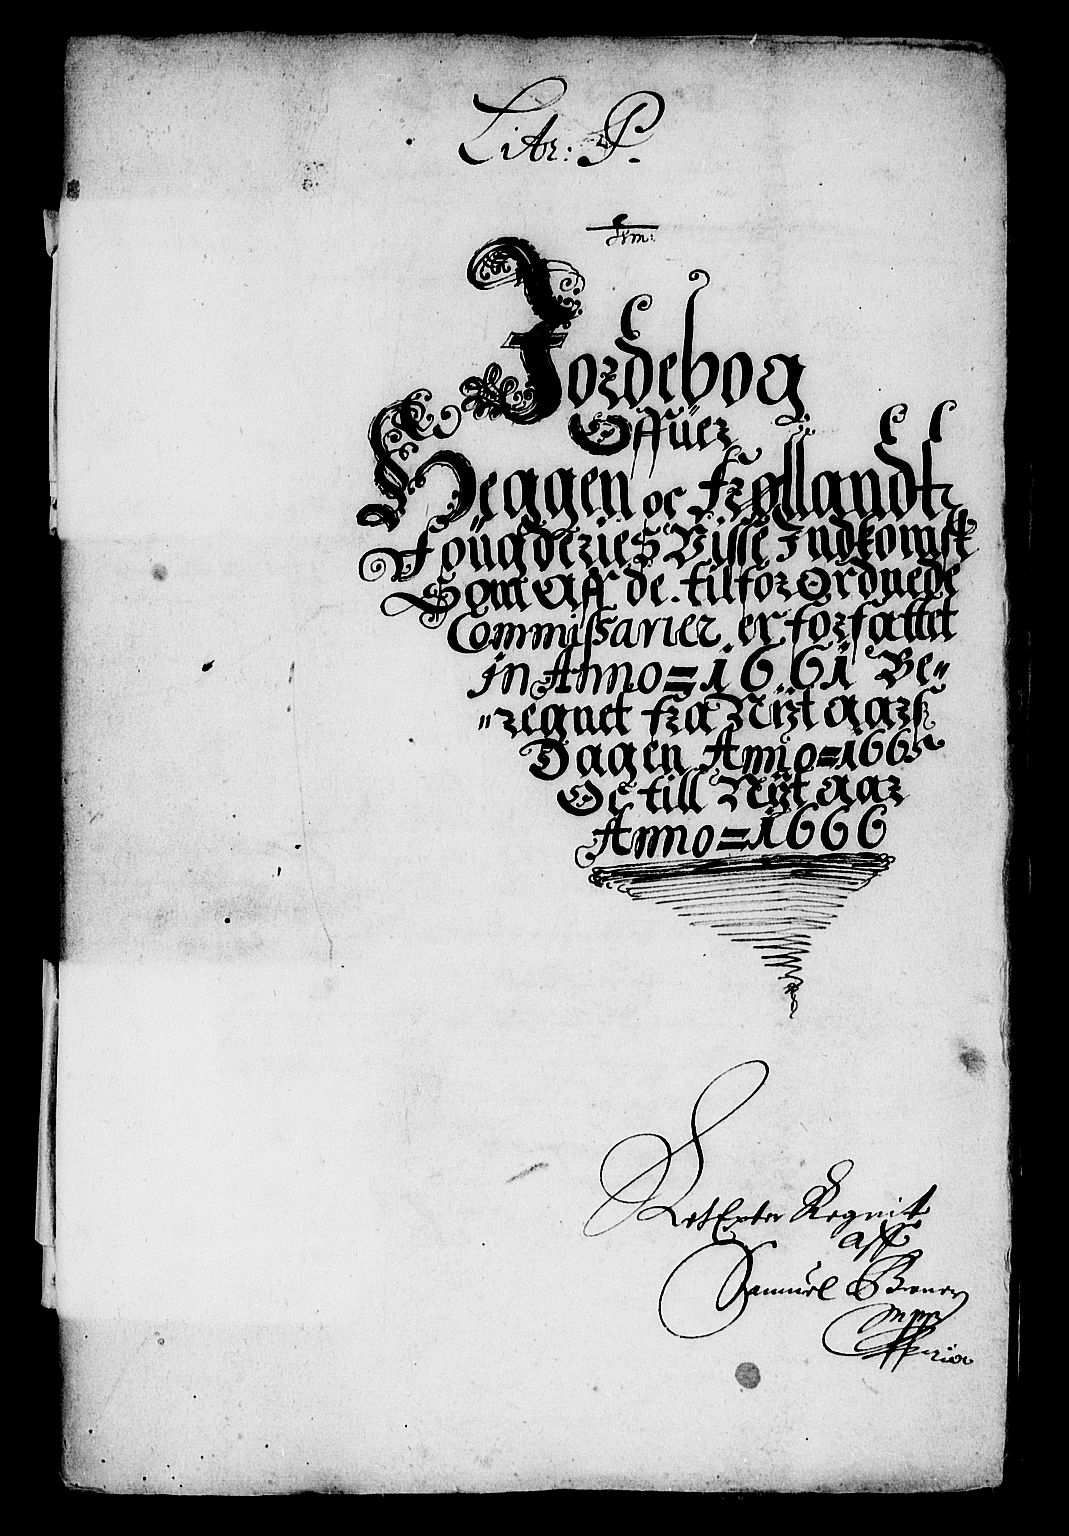 Litr: P.
Jordebog
Offüer
Heggen oc Frøllandtz
Foügderies Visse Indkomst
Som aff de tilforordnede
Commissarier er forfattet
in Anno=1661 Be„
„regnet fra Nÿt aars
Dagen Anno=1665
Oc till Nÿt aar
Anno=1666
Regnit
aff
Samuel
mpp